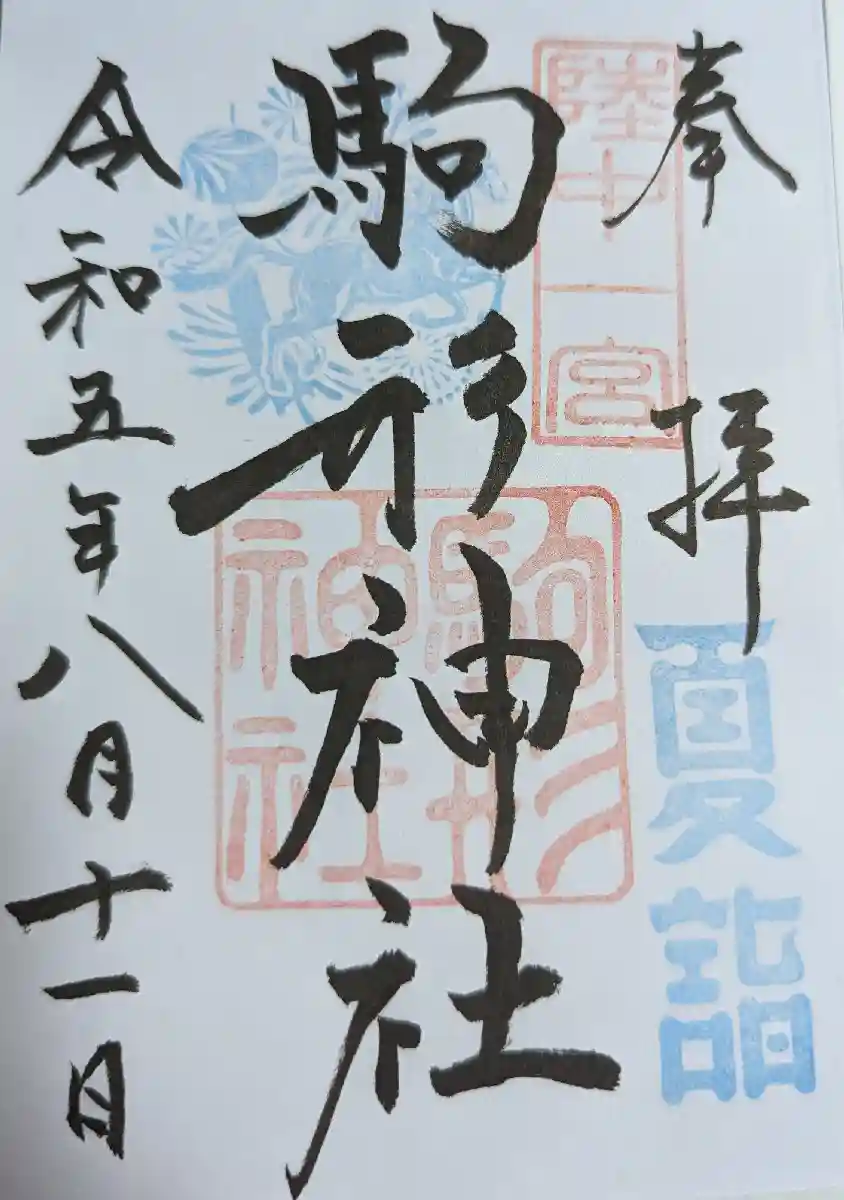 奉拝
夏詣
陸中一宮
駒形神社
駒形
神社
令和五年八月十一日